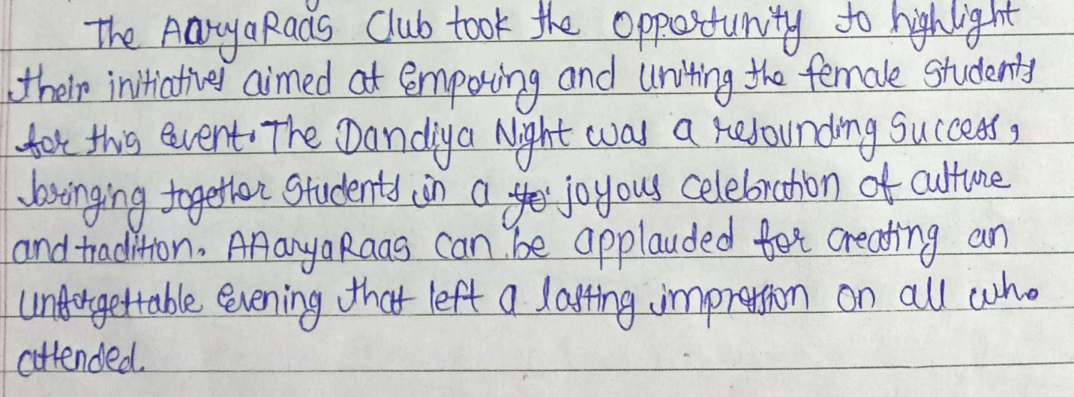 The AaryaRaas Club took the opportunity to highlight
their initiatives aimed at Emporing and Uniting the female students
for this event. The Dandiya Night was a resounding success,
bringing together students in a joyous celebration of culture
and tradition. AAaryaRaas can be applauded for creating an
unforgettable evening that left a lasting impression on all who
attended.